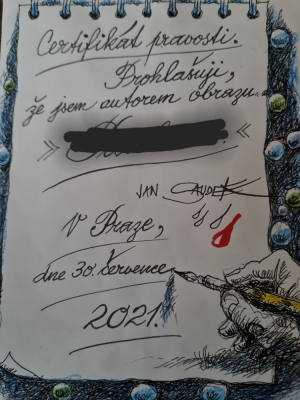 Certifikát pravosti.
Prohlašuji,
že jsem autorem obrazu
JAN SAUDEK
V Praze,
dne 30. července
2021.